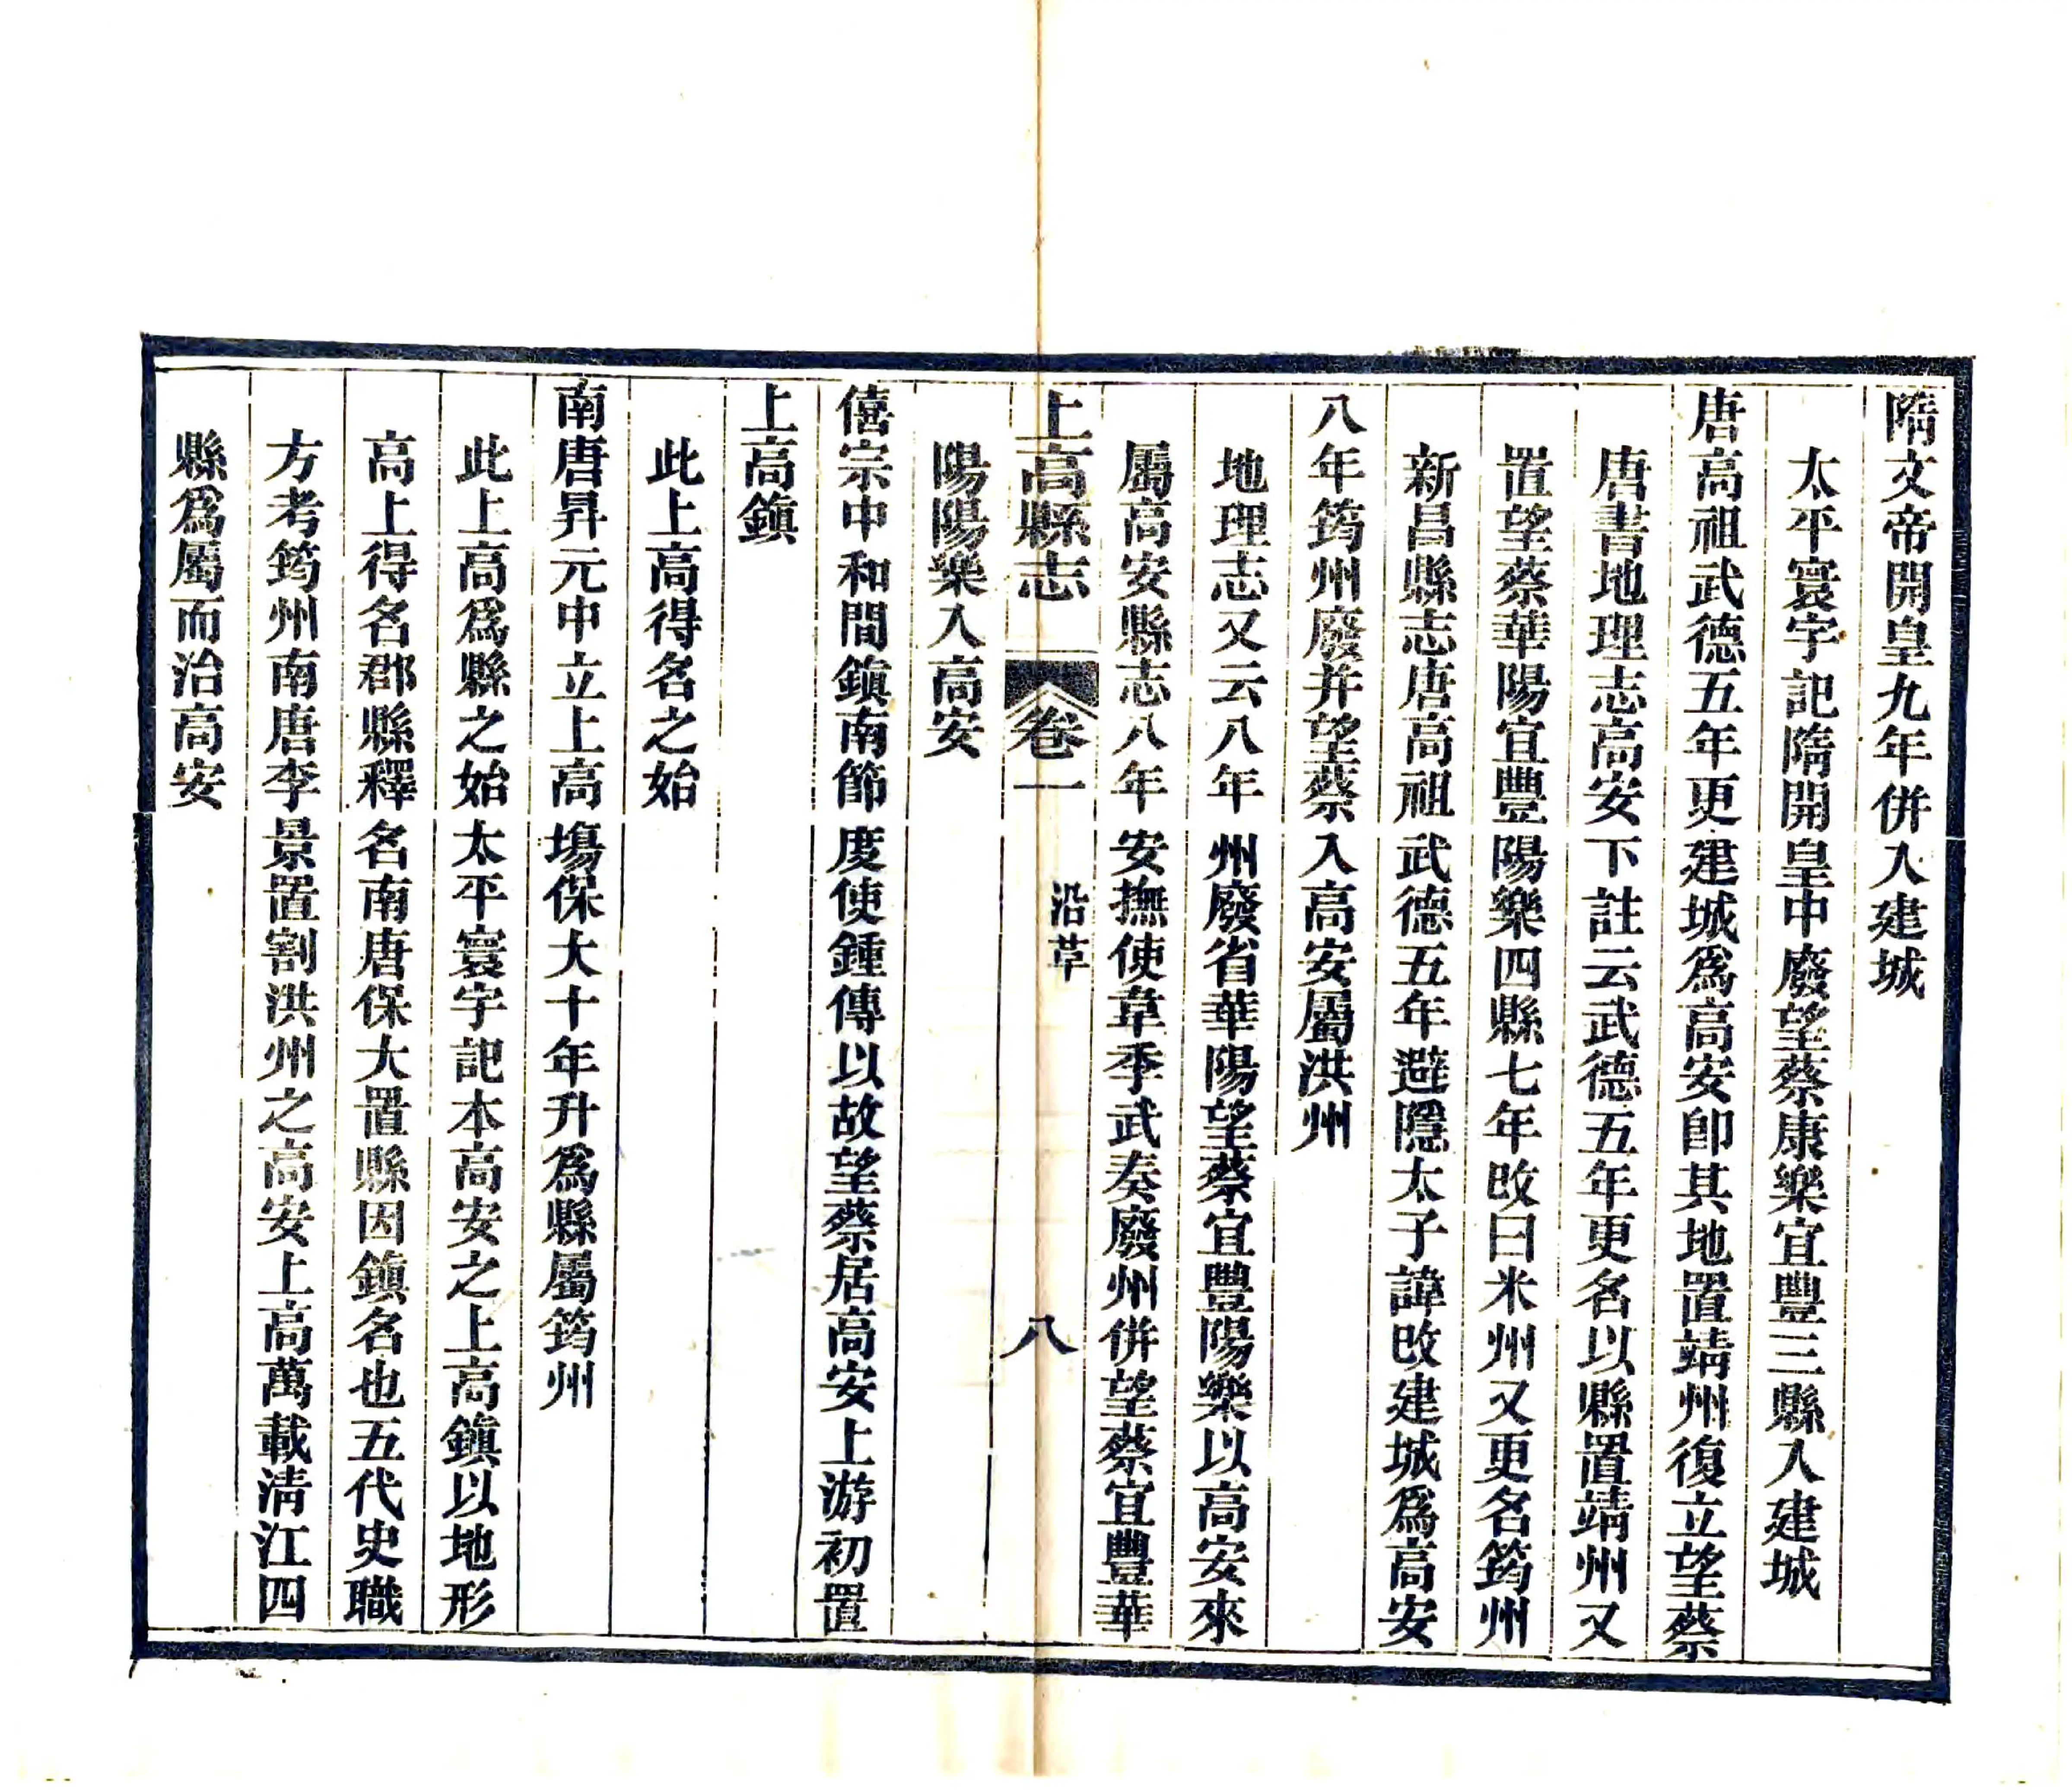 隋文帝開皇九年併入建城
太平寰宇記隋開皇中廢望蔡康樂宜豐三縣入建城
唐高祖武德五年更建城爲高安卽其地置靖州復立望蔡
唐書地理志高安下註云武德五年更名以縣置靖州又
置望蔡華陽宜豐陽樂四縣七年改曰米州又更名筠州
新昌縣志唐高祖武德五年避隱太子諱改建城爲高安
八年筠州廢并望蔡入高安屬洪州
地理志又云八年州廢省華陽望蔡宜豐陽樂以高安來
屬高安縣志八年安撫使韋季武奏廢州併望蔡宜豐華
上高縣志 卷一 沿革 八
陽陽樂入高安
僖宗中和間鎮南節度使鍾傳以故望蔡居高安上游初置
上高鎮
此上高得名之始
南唐昇元中立上高塲保大十年升爲縣屬筠州
此上高爲縣之始太平寰宇記本高安之上高鎮以地形
高上得名郡縣釋名南唐保大置縣因鎮名也五代史職
方考筠州南唐李景置割洪州之高安上高萬載清江四
縣爲屬而治高安